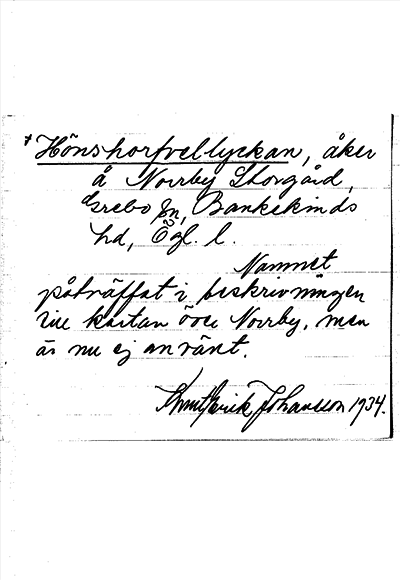 * Hönshorfvellyckan, åker
å Norrby Storgård,
Grebo sn, Bankekinds
hd, Ögl. l.
Namnet
påträffat i beskrivningen
till kartan över Norrby, men
är nu ej använt.
Knut Erik Johansson 1934.